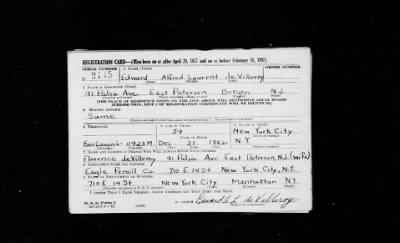 REGISTRATION CARD—(Men born on or after April 28, 1877 and on or before February 16, 1897)
SERIAL NUMBER 1. NAME (Print) ORDER NUMBER
U 2145 Edward Alfred Laurent de Villeroy
2. PLACE OF RESIDENCE (Print)
91 Palsa Ave. East Paterson Bergen N.J.
[THE PLACE OF RESIDENCE GIVEN ON THE LINE ABOVE WILL DETERMINE LOCAL BOARD
JURISDICTION; LINE 2 OF REGISTRATION CERTIFICATE WILL BE IDENTICAL]
3. MAILING ADDRESS
Same
4. TELEPHONE 5. AGE IN YEARS 6. PLACE OF BIRTH
59 New York City
DATE OF BIRTH
FairLawn 0923M Dec 31 1882 N.Y
7. NAME AND ADDRESS OF PERSON WHO WILL ALWAYS KNOW YOUR ADDRESS
Florence deVilleroy 91 Palsa Ave East Paterson, N.J. (wife)
8. EMPLOYER'S NAME AND ADDRESS
Eagle Pencil Co 710 E 14 St. New York City, N.Y.
9. PLACE OF EMPLOYMENT OR BUSINESS
710 E 14 St New York City Manhattan NY
I AFFIRM THAT I HAVE VERIFIED ABOVE ANSWERS AND THAT THEY ARE TRUE.
D. S. S. Form 1 Edward A. L. de Villeroy